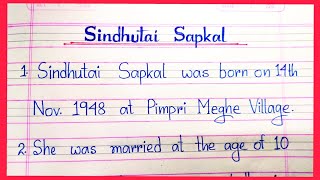 Sindhutai Sapkal
1. Sindhutai Sapkal was born on 14th
Nov. 1948 at Pimpri Meghe Village.
2. She was married at the age of 10